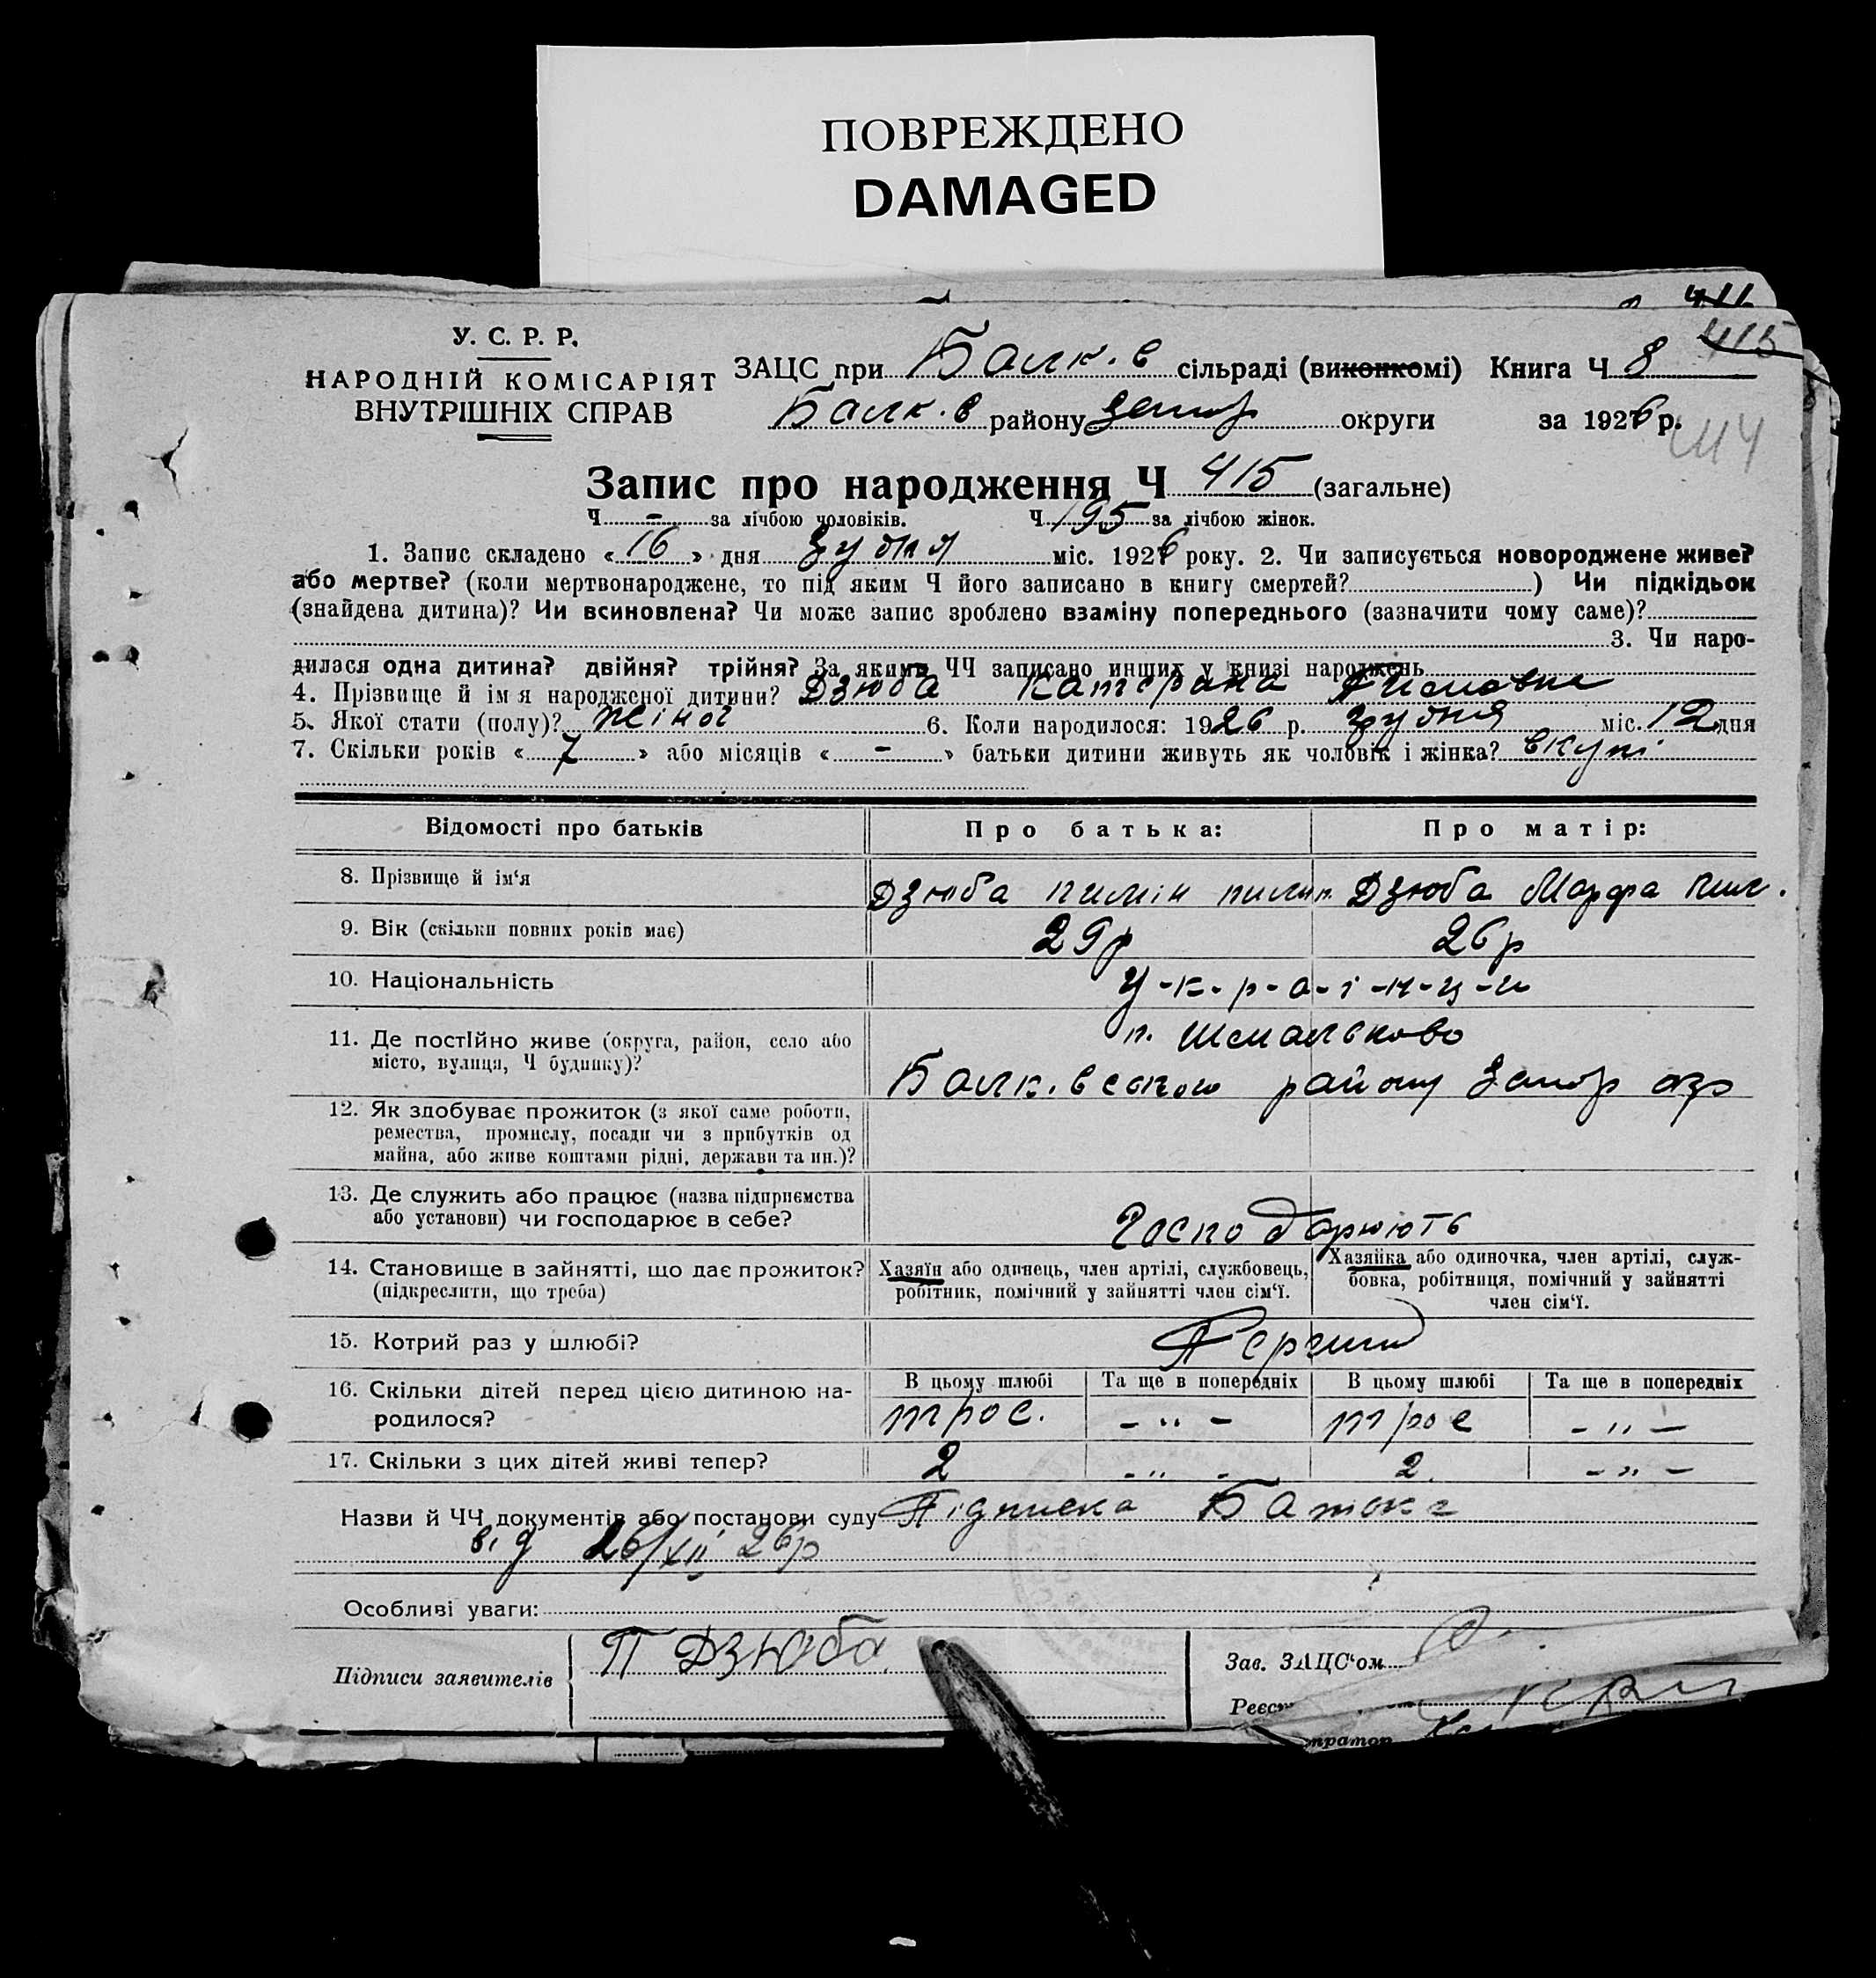 ПОВРЕЖДЕНО
DAMAGED
411
415
У. С. Р. Р.
НАРОДНІЙ КОМІСАРІЯТ
ВНУТРІШНІХ СПРАВ
ЗАЦС при Балк.в сільраді (виконкомі) Книга Ч 8
Балк.в району Запор округи за 1926 р.
414
Запис про народження Ч 415 (загальне)
Ч - за лічбою чоловіків. Ч 195 за лічбою жінок.
1. Запис складено «16» дня грудня міс. 1926 року. 2. Чи записується новороджене живе?
або мертве? (коли мертвонароджене, то під яким Ч його записано в книгу смертей?) Чи підкідьок
(знайдена дитина)? Чи всиновлена? Чи може запис зроблено взаміну попереднього (зазначити чому саме)?
3. Чи наро-
дилася одна дитина? двійня? трійня? За якими ЧЧ записано инших у книзі народжень
4. Прізвище й імя народженої дитини? Дзюба Катерана
5. Якої стати (полу)? жіної 6. Коли народилося: 1926 р. грудня міс. 12 дня
7. Скільки років «7» або місяців «-» батьки дитини живуть як чоловік і жінка? вкупі
Відомості про батьків Про батька: Про матір:
8. Прізвище й ім‘я Дзюба пилип Дзюба Марфа пил.
9. Вік (скільки повних років має) 29р 26р
10. Національність У-к-р-а-ї-н-ц-и
11. Де постійно живе (округа, район, село або
місто, вулиця, Ч будинку)?
п.
Балк.вского району Запор окр
12. Як здобуває прожиток (з якої саме роботи,
ремества, промислу, посади чи з прибутків од
майна, або живе коштами рідні, держави та ин.)?
13. Де служить або працює (назва підприємства
або установи) чи господарює в себе?
Господарюють
14. Становище в зайнятті, що дає прожиток?
(підкреслити, що треба)
Хазяїн або одинець, член артілі, службовець,
робітник, помічний у зайнятті член сім‘ї.
Хазяйка або одиночка, член артілі, служ-
бовка, робітниця, помічний у зайнятті
член сім‘ї.
15. Котрий раз у шлюбі? Перший
16. Скільки дітей перед цією дитиною на-
родилося?
В цьому шлюбі Та ще в попередніх В цьому шлюбі Та ще в попередніх
трое. - " - трое - " -
17. Скільки з цих дітей живі тепер? 2 - " - 2. - " -
Назви й ЧЧ документів або постанови суду Підписка Батька
від 26/XII 26р
Особливі уваги:
Підписи заявителів П Дзюба
Зав. ЗАЦС‘ом
Реєст
тратор